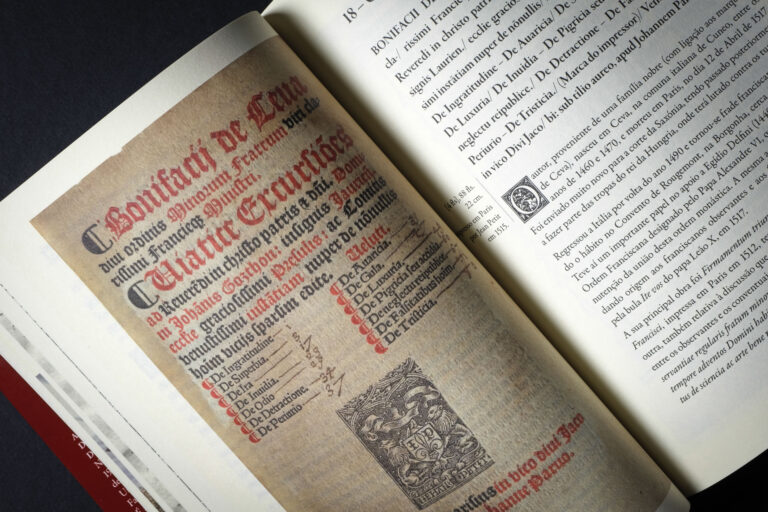 Bonifacij de Ceua
diui ordinis Minorum Fratrum viri cla-
rissimi Francieq̃ Ministri.
Uiatice Excursiões
ad Reuerēdi in christo patris & dñi. Domi-
ni Johānis Goathon. insignis Laurien̄.
ecclie graciosissimi Presulis. ac Comitis
venustissimi instātiam nuper de nōnullis
hoim viciis sparsim edite. Uelut.
De Ingratitudine
De Superbia.
De Ira
De Inuidia.
De Odio
De Detractione.
De Periurio
De Auaricia.
De Gula.
De Luxuria.
De Pigricia
De neglectu reipublice.
De Falsitatibus
De Tristicia.
in vico diui Jaco
Johanne Paruo.
18 –
BONIFACII
cla-/ rissimi Franci
Reveredi in christo patris
signis Laurien./ ecclie gracio
simi instātiam nuper de nōnullis/
De Ingratitudine – De Auaricia/ De
De Luxuria/ De Inuidia – De Pigricia
neglectu reipublice./ De Detractione – De
Periurio – De Tristicia/ (Marca do impressor)/
in vico Divi Jaco/ bi: sub tilio aureo, apud Johannem
88 fls.
22 cm.
em Paris
por Jean Petit
em 1515.
O autor, proveniente de uma família nobre (com ligação aos marqu
de Ceva), nasceu em Ceva, na comuna italiana de Cuneo, entre o
anos de 1460 e 1470, e morreu em Paris, no dia 12 de Abril de 1517
Foi enviado muito novo para a corte da Saxónia, tendo passado posteriorme
a fazer parte das tropas do rei da Hungria, onde terá lutado contra os tu
Regressou a Itália por volta do ano 1490 e tornou-se frade franciscan
do o hábito no Convento de Rougemont, na Borgonha, cerca
Teve aí um importante papel no apoio a Egídio Delfini (144
Ordem Franciscana designado pelo Papa Alexandre VI,
nutenção da união desta ordem monástica. A mesma
dando origem aos franciscanos observantes e aos
pela bula Ite vos do papa Leão X, em 1517.
A sua principal obra foi Firmamentum trium
Francisci, impressa em Paris em 1512,
outra, também relativa à discussão que
entre os observantes e os conventua
servantiae regularis fratrum minor
tempore adventos Domini habit
tus de sciencia ac arte bene